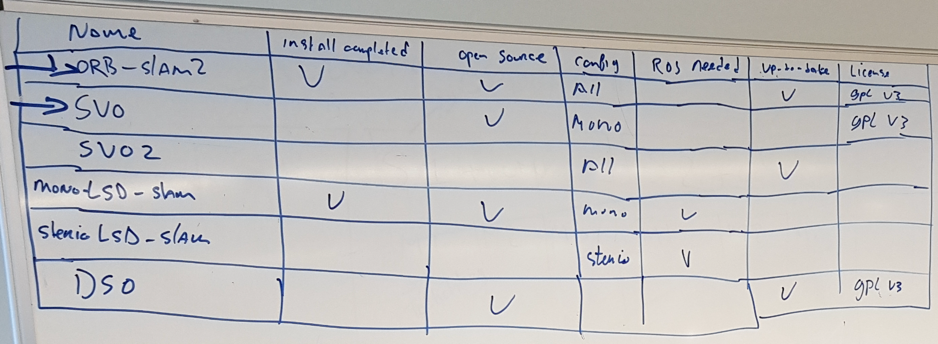 Name install completed open source config ROS needed up-to-date License
ORB-SLAM2 V V All V gpl v3
SVO V Mono gpl v3
SVO2 All V
mono-LSD-slam V V mono V
sterio LSD-slam sterio V
DSO V V gpl v3